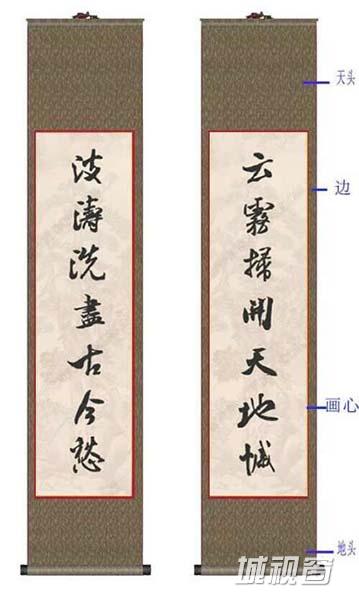 云霧掃開天地憾
波濤洗盡古今愁
天头
边
画心
地头
城视窗